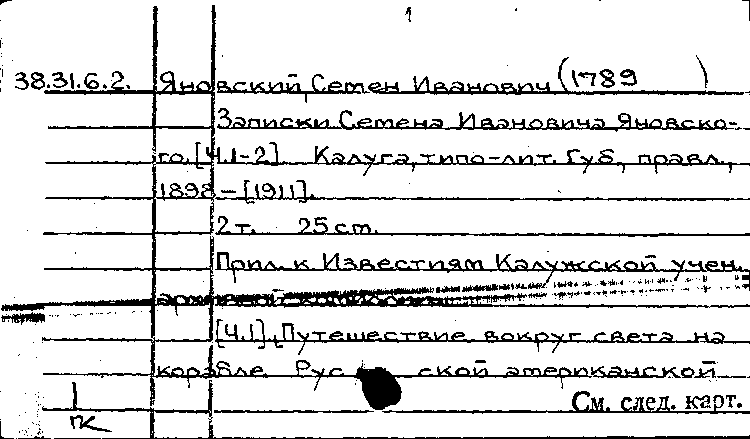 1
38.31.6.2. Яновский, Семен Иванович (1789 )
Записки Семена Ивановича Яновско-
го. [Ч.1-2] Калуга, типо-лит. Губ., правл.,
1898 – [1911].
2 т. 25 cm.
Прил. к Известиям Калужской учен.
архивной комиссии
[Ч.1], Путешествие вокруг света на
корабле Рус ской американской
См. след. карт.
1
пк